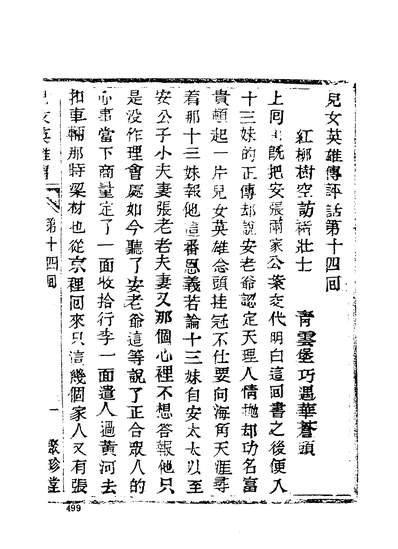 兒女英雄傳評話第十四回
紅柳樹空訪褚壯士
青雲堡巧遇華蒼頭
上回書既把安張兩家公案交代明白這回書之後便入
十三妹的正傳却說安老爺認定天理人情拋却功名富
貴頓起一片兒女英雄念頭挂冠不仕要向海角天涯尋
着那十三妹報他這番恩義若論十三妹自安太太以至
安公子小夫妻張老老夫妻又那個心裡不想答報他只
是没作理會處如今聽了安老爺這等說了正合衆人的
心事當下商量定了一面收拾行李一面遣人過黄河去
扣車輛那時梁材也從京裡回來只這幾個家人又有張
兒女英雄傳
第十四回
一
聚珍堂
499